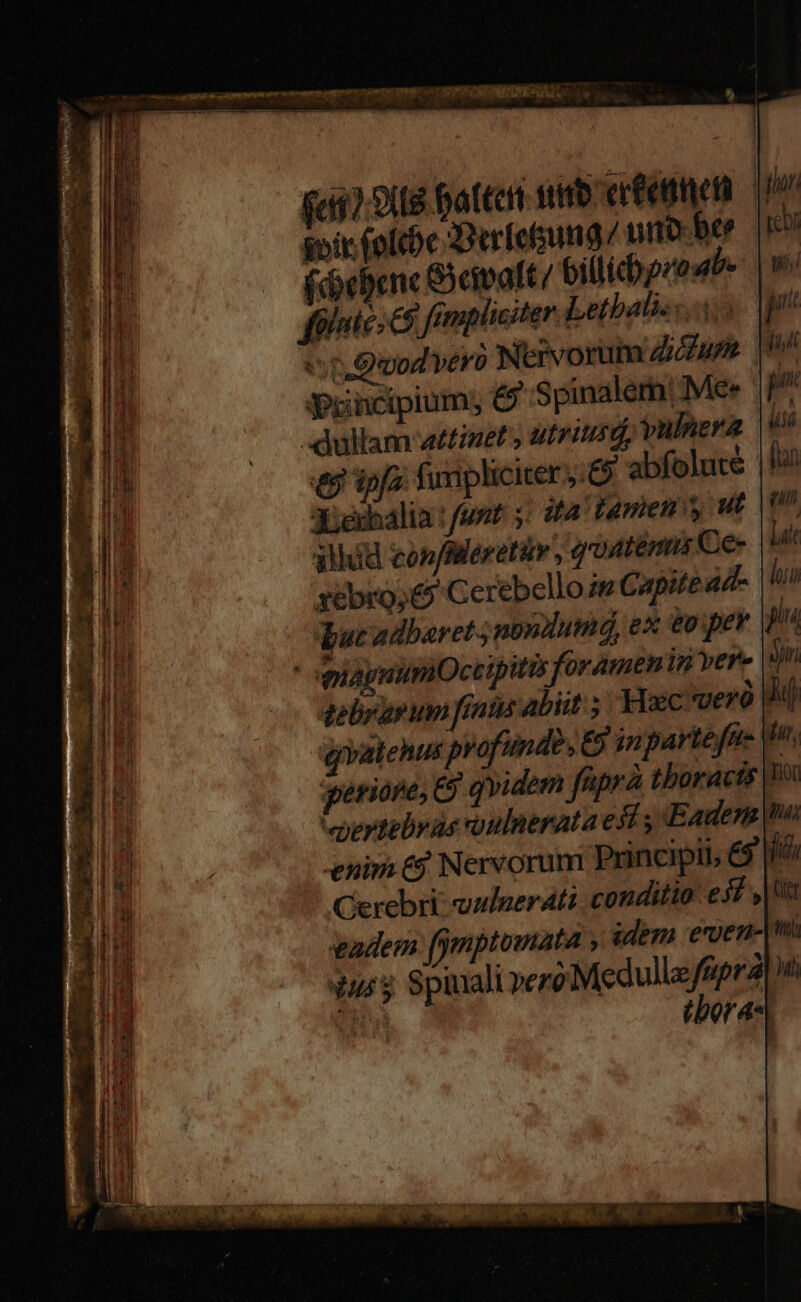 ſein? Als halten und erkennen
wir ſolche Verletzung / und be-
ſchehene Gewalt / billich pro ab-
ſolutè, & ſimpliciter Lethali.
Qvod verò Nervorum dictum
Principium, & Spinalem Me-
dullam attinet, utriusq; vulnera
& ipſa ſimpliciter, & abſolutè
Lethalia ſunt; ita tamen, ut
illud conſideretur, qvatenus Ce-
rebro, & Cerebello in Capite ad-
huc adhæret, nondumq; ex eo per
magnum Occipitis foramen in ver-
tebrarum ſinus abiit; Hæc verò
qvatenus profundè, & in parte ſu-
periore, & qvidem ſuprà thoracis
vertebras vulnerata eſt; Eadem
enim & Nervorum Principii, &
Cerebri vulnerati conditio eſt,
eadem ſymptomata, idem even-
tus; Spinali verò Medullæ ſuprà
thora-